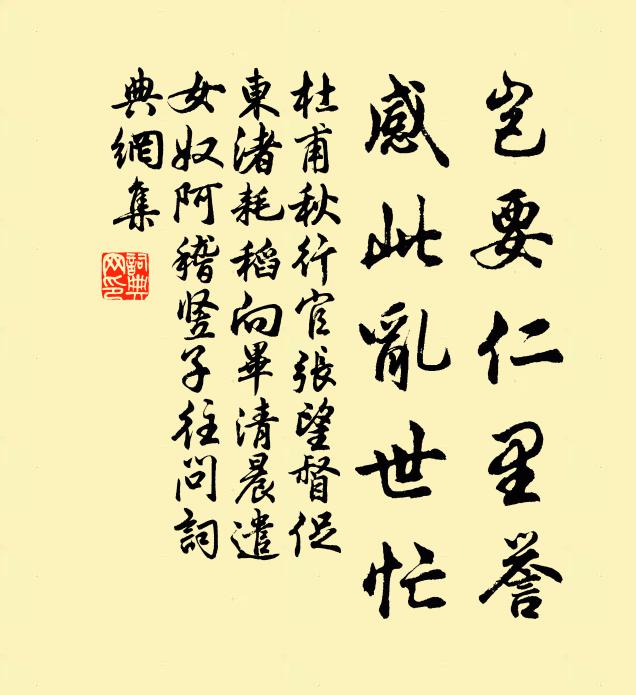 豈要仁里譽
感此亂世忙
杜甫秋行官張望督促
東渚耗稻向畢清晨遣
女奴阿稽豎子往問詞
典網集
詞典
网印